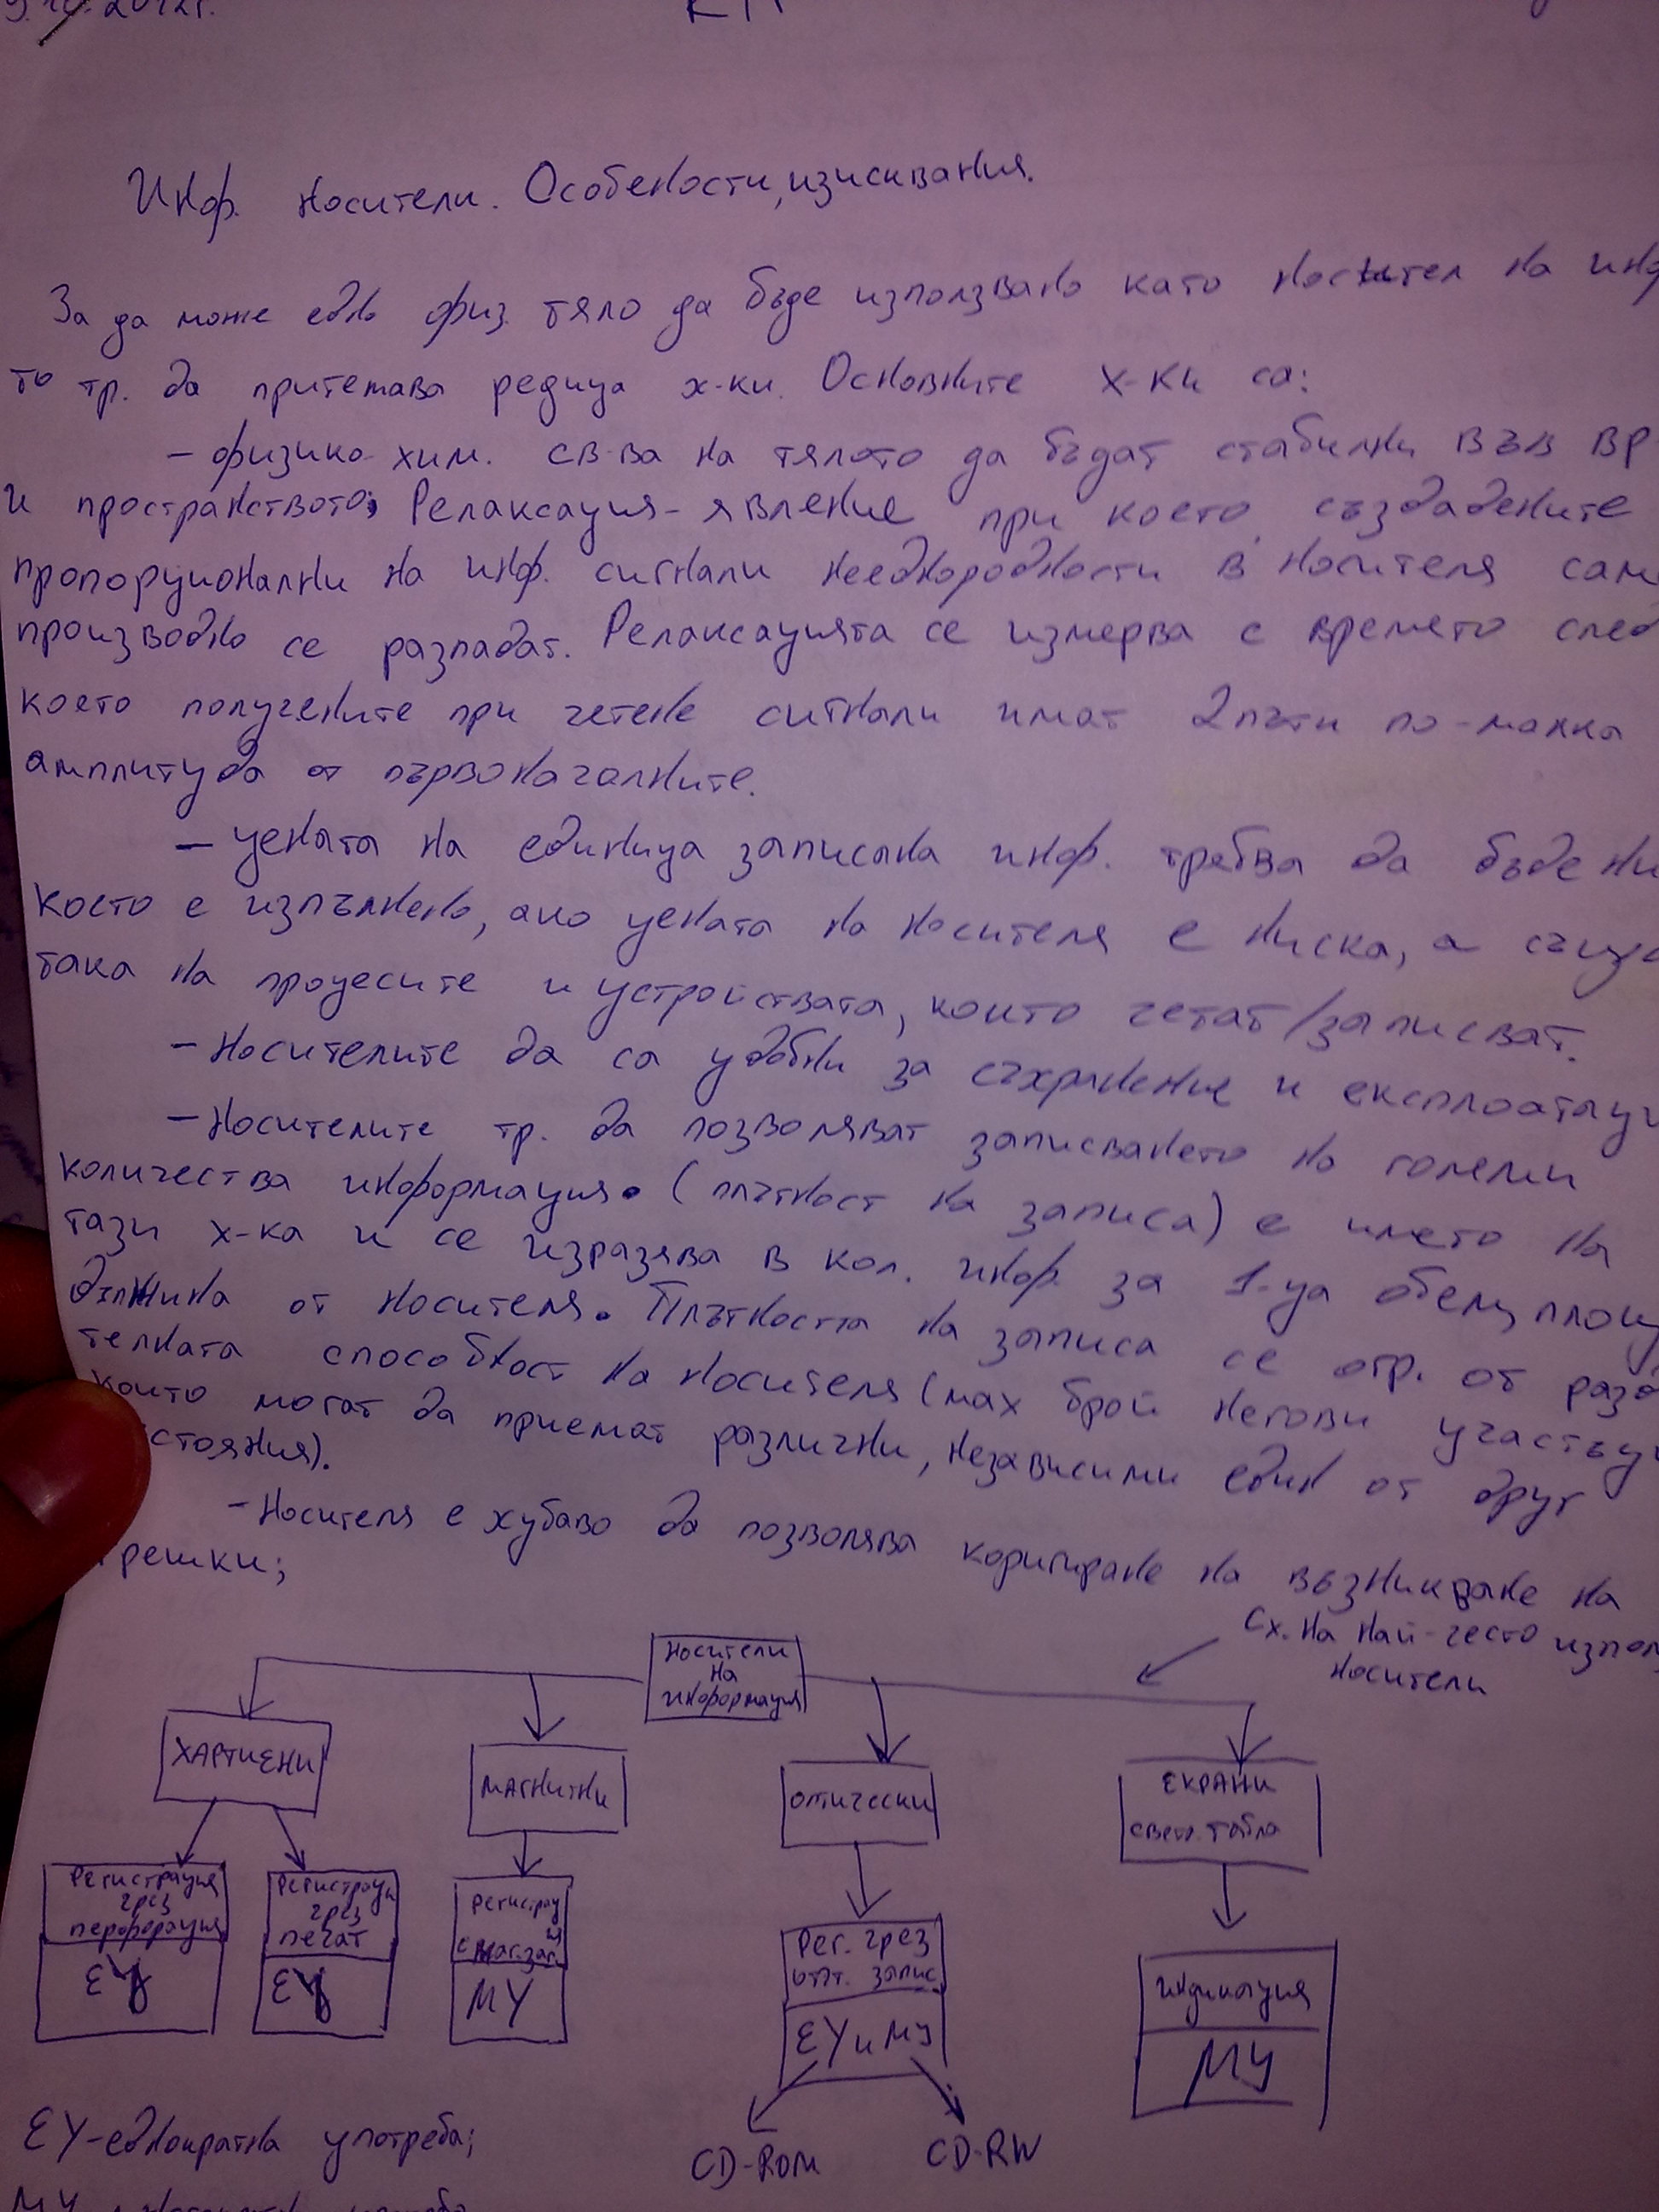 2012г.
КП
Инф. носители. Особености, изисквания.
За да може едно физ. тяло да бъде използвано като носител на инф
то тр. да притежава редица х-ки. Основните х-ки са:
- физико хим. св-ва на тялото да бъдат стабилни във вр
и пространството; Релаксация - явление при което създадените
пропорционални на инф. сигнали нееднородности в носителя само
произволно се разпадат. Релаксацията се измерва с времето след
което получените при четене сигнали имат 2 пъти по-малка
амплитуда от първоначалните.
- цената на единица записана инф. трябва да бъде ни
което е изпълнено, ако цената на носителя е ниска, а също
така на процесите и устройствата, които четат/записват.
- Носителите да са удобни за съхранение и експлоатац
- Носителите тр. да позволяват записването на големи
количества информация. (плътност на записа) е името на
тази х-ка и се изразява в кол. инф. за 1-ца обем, площ
дължина от носителя. Плътността на записа се опр. от разд
телната способност на носителя (max брой негови участъци
които могат да приемат различни, независими един от друг
стояния).
- Носителя е хубаво да позволява коригиране на възникване на
грешки;
Сх. на най-често изпол
носители
Носители
на
информация
ХАРТИЕНИ
МАГНИТНИ
ОПТИЧЕСКИ
ЕКРАНИ
свето. табла
Регистрация
чрез
перфорация
ЕУ
Регистраци
чрез
печат
ЕУ
Регистрац
ия
с маг. заг.
МУ
Рег. чрез
опт. запис
ЕУ и МУ
индикация
МУ
CD-ROM
CD-RW
ЕУ-еднократна употреба;
МУ